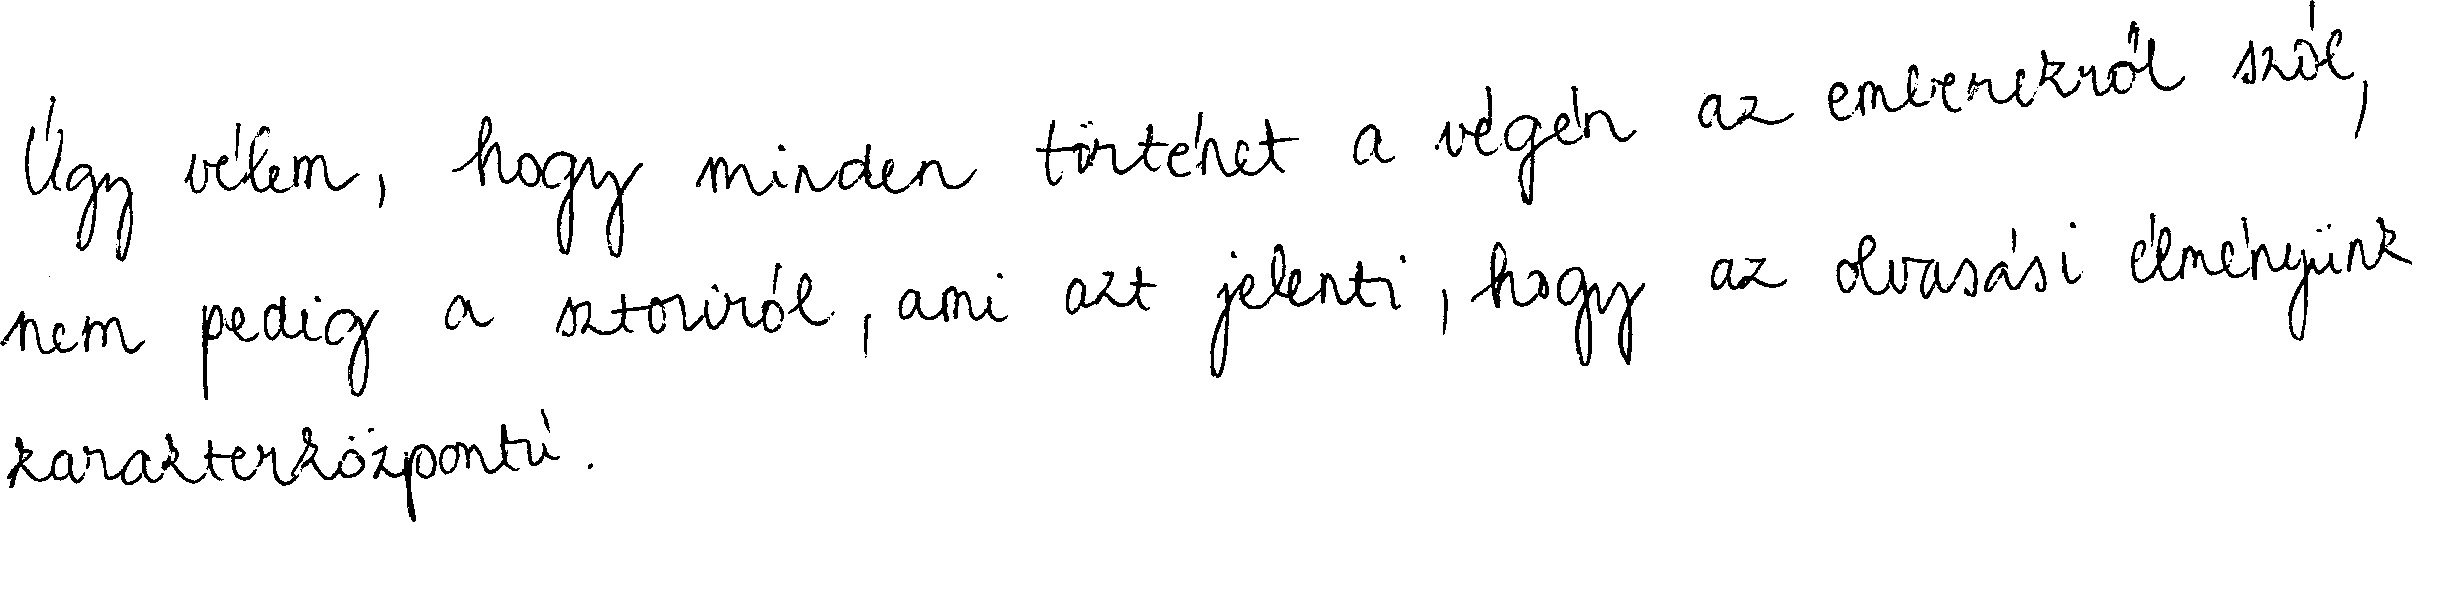 Úgy vélem, hogy minden történet a végén az emberekről szól,
nem pedig a sztoriról, ami azt jelenti, hogy az olvasási élményünk
karakterközpontú.